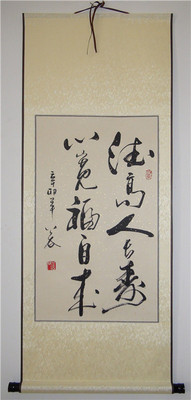 德高人长寿
心宽福自来
辛卯年